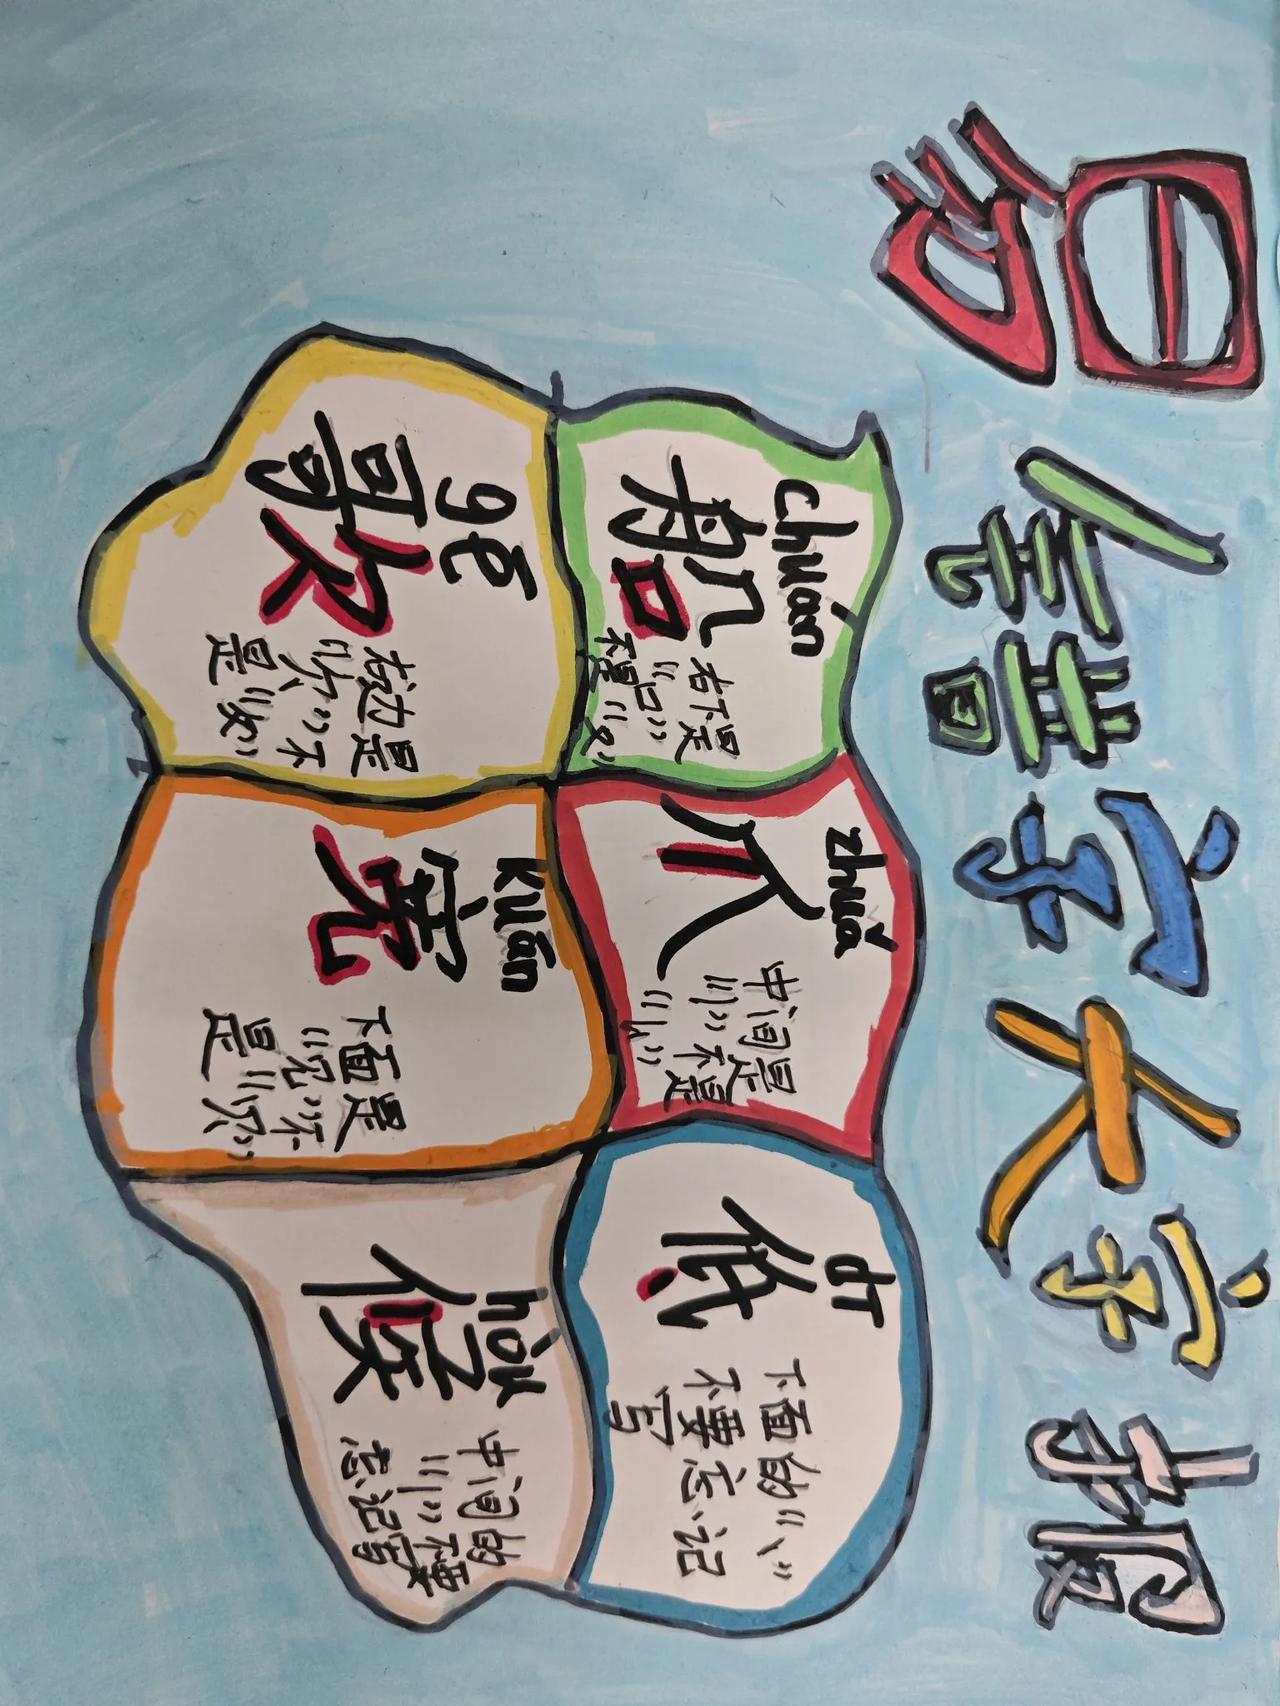 易错字大字报
chuán
船
右下是
“口”
不是“又”
zhuǎ
爪
中间是
“刂”不是
dī
低
下面的“、”
不要忘记
写
gē
歌
右边是
“欠”不
是“攵”
kuān
宽
下面是
“见”不
是“贝”
hòu
候
中间的
“丨”不要
忘记写